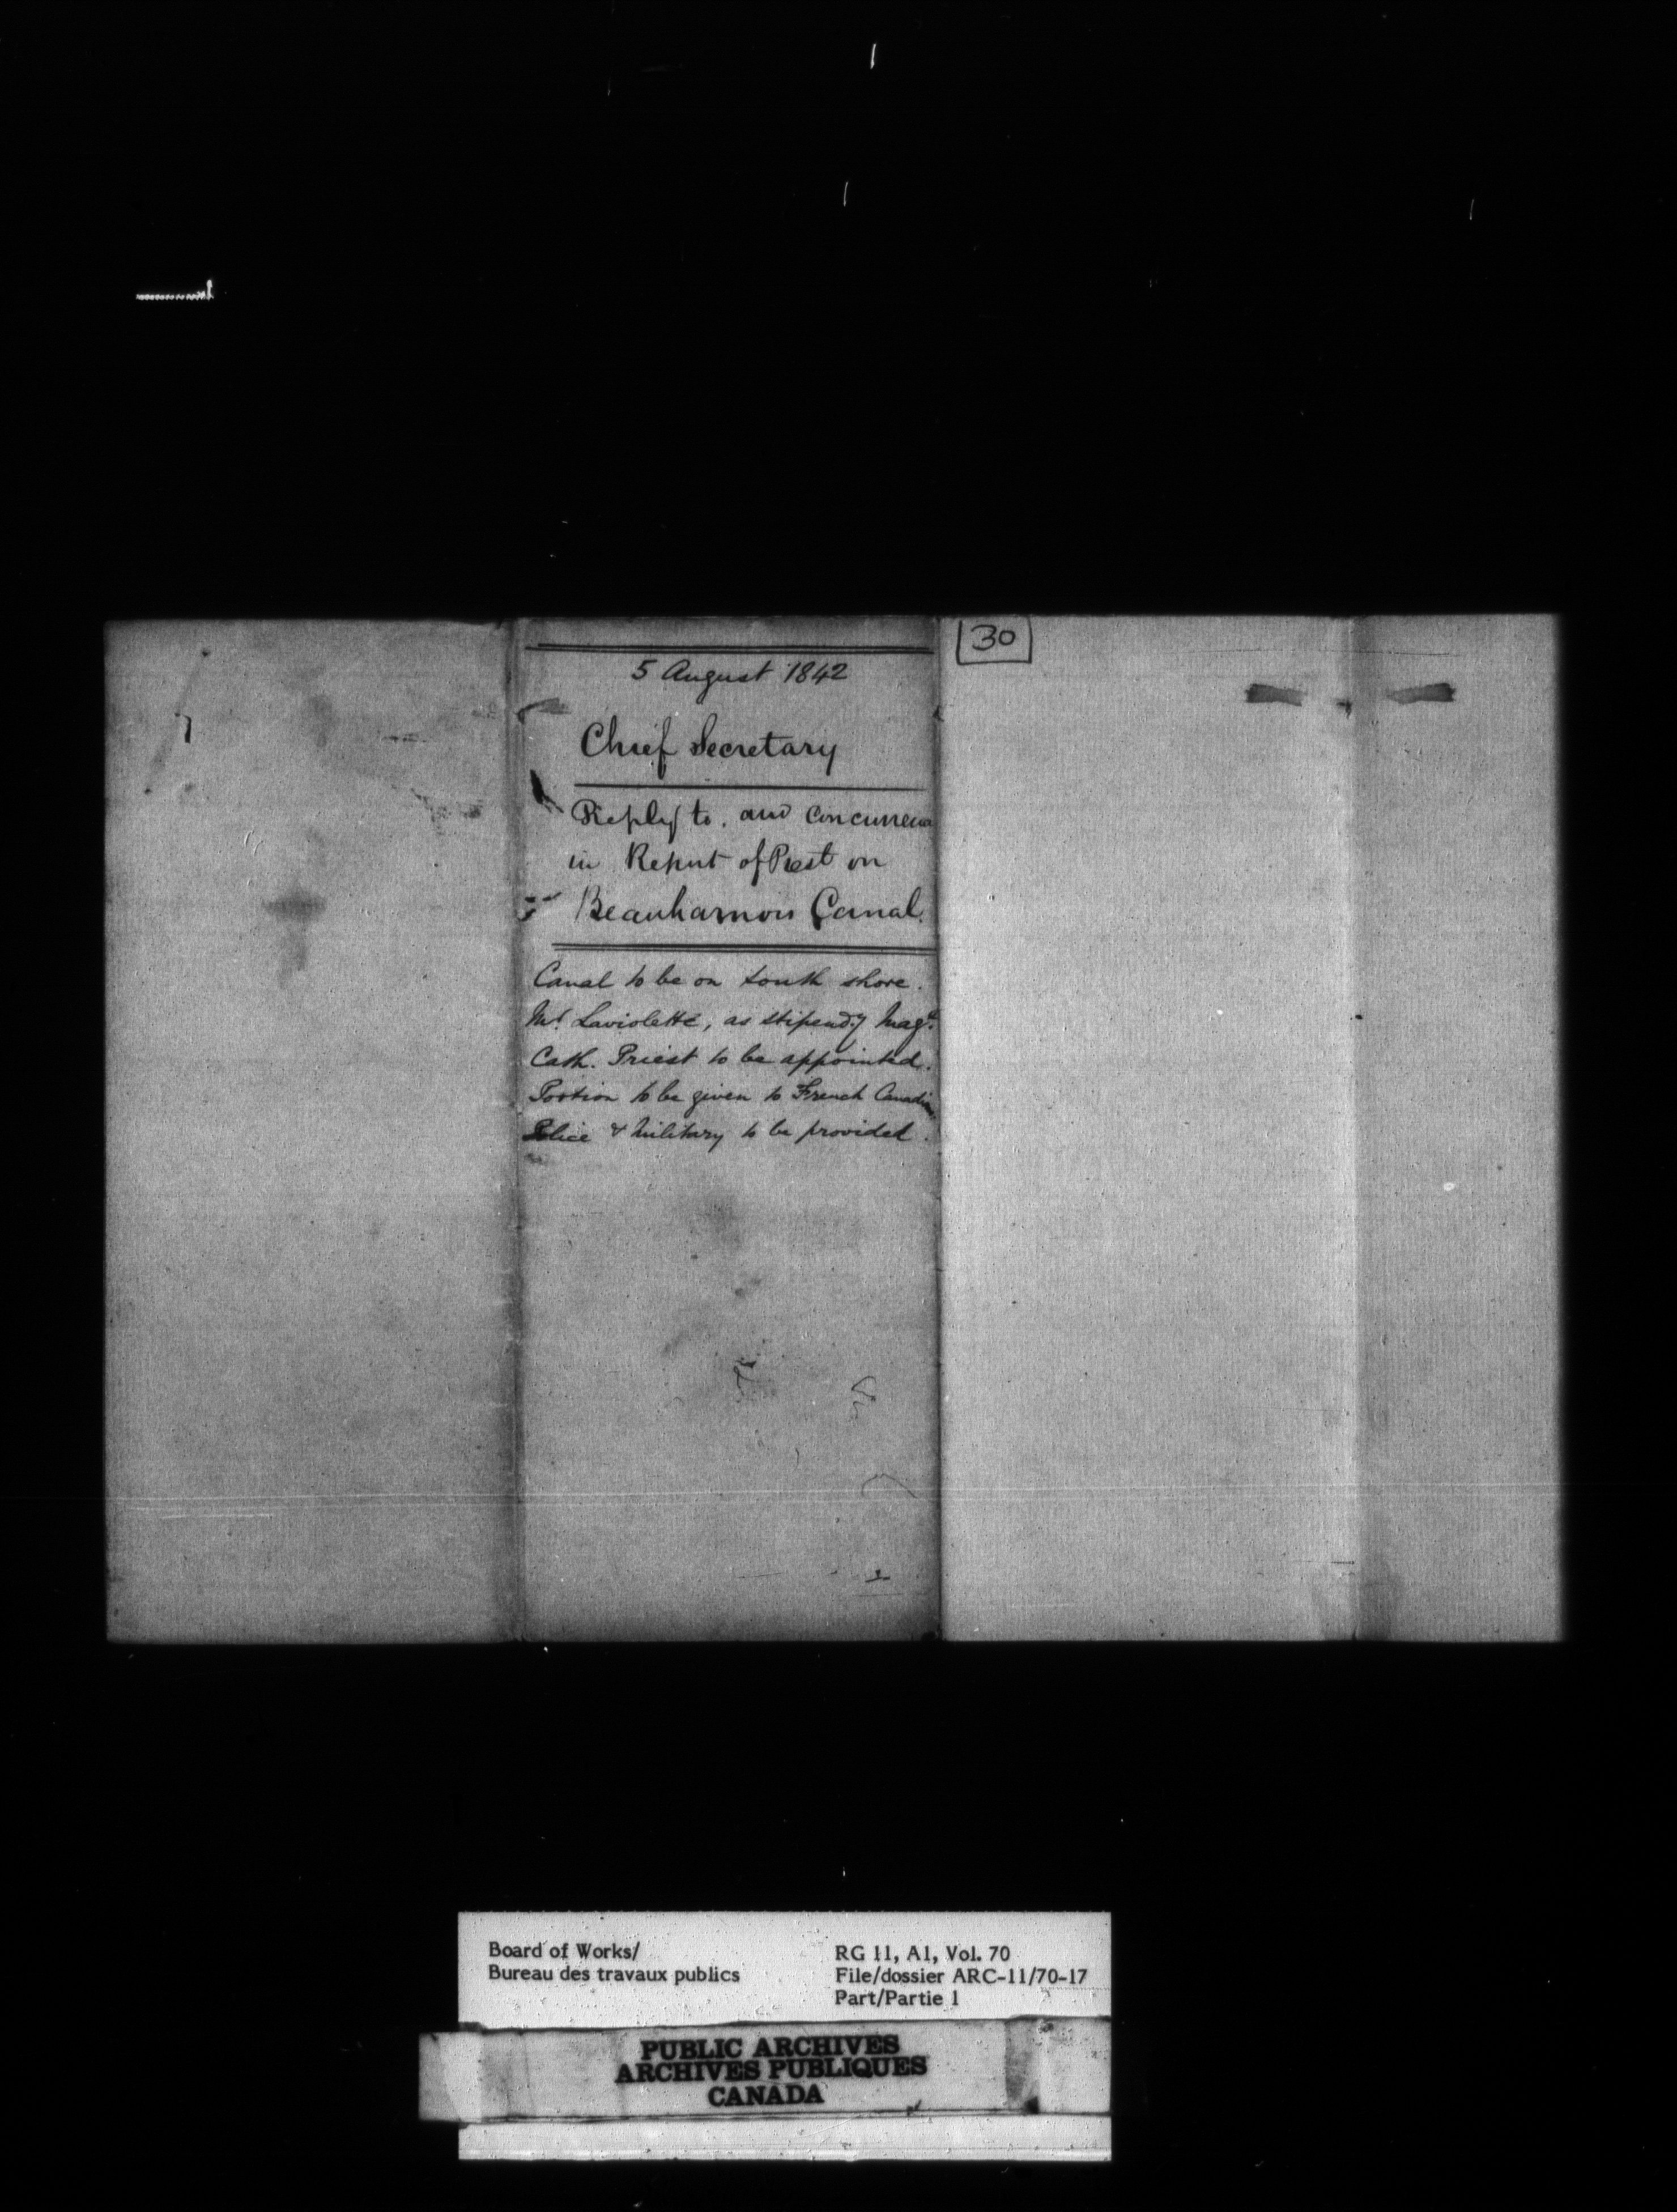 30
5 August 1842
Chief Secretary
Reply to, and concurrence
in Report of Prest on
Beauharnois Canal.
Canal to be on south shore.
Mr. Laviolette, as stipendy Magt.
Cath. Priest to be appointed.
Portion to be given to French Canadian
Police & Military to be provided.
Board of Works/
Bureau des travaux publics
RG 11, A1, Vol. 70
File/dossier ARC-11/70-17
Part/Partie 1
PUBLIC ARCHIVES
ARCHIVES PUBLIQUES
CANADA